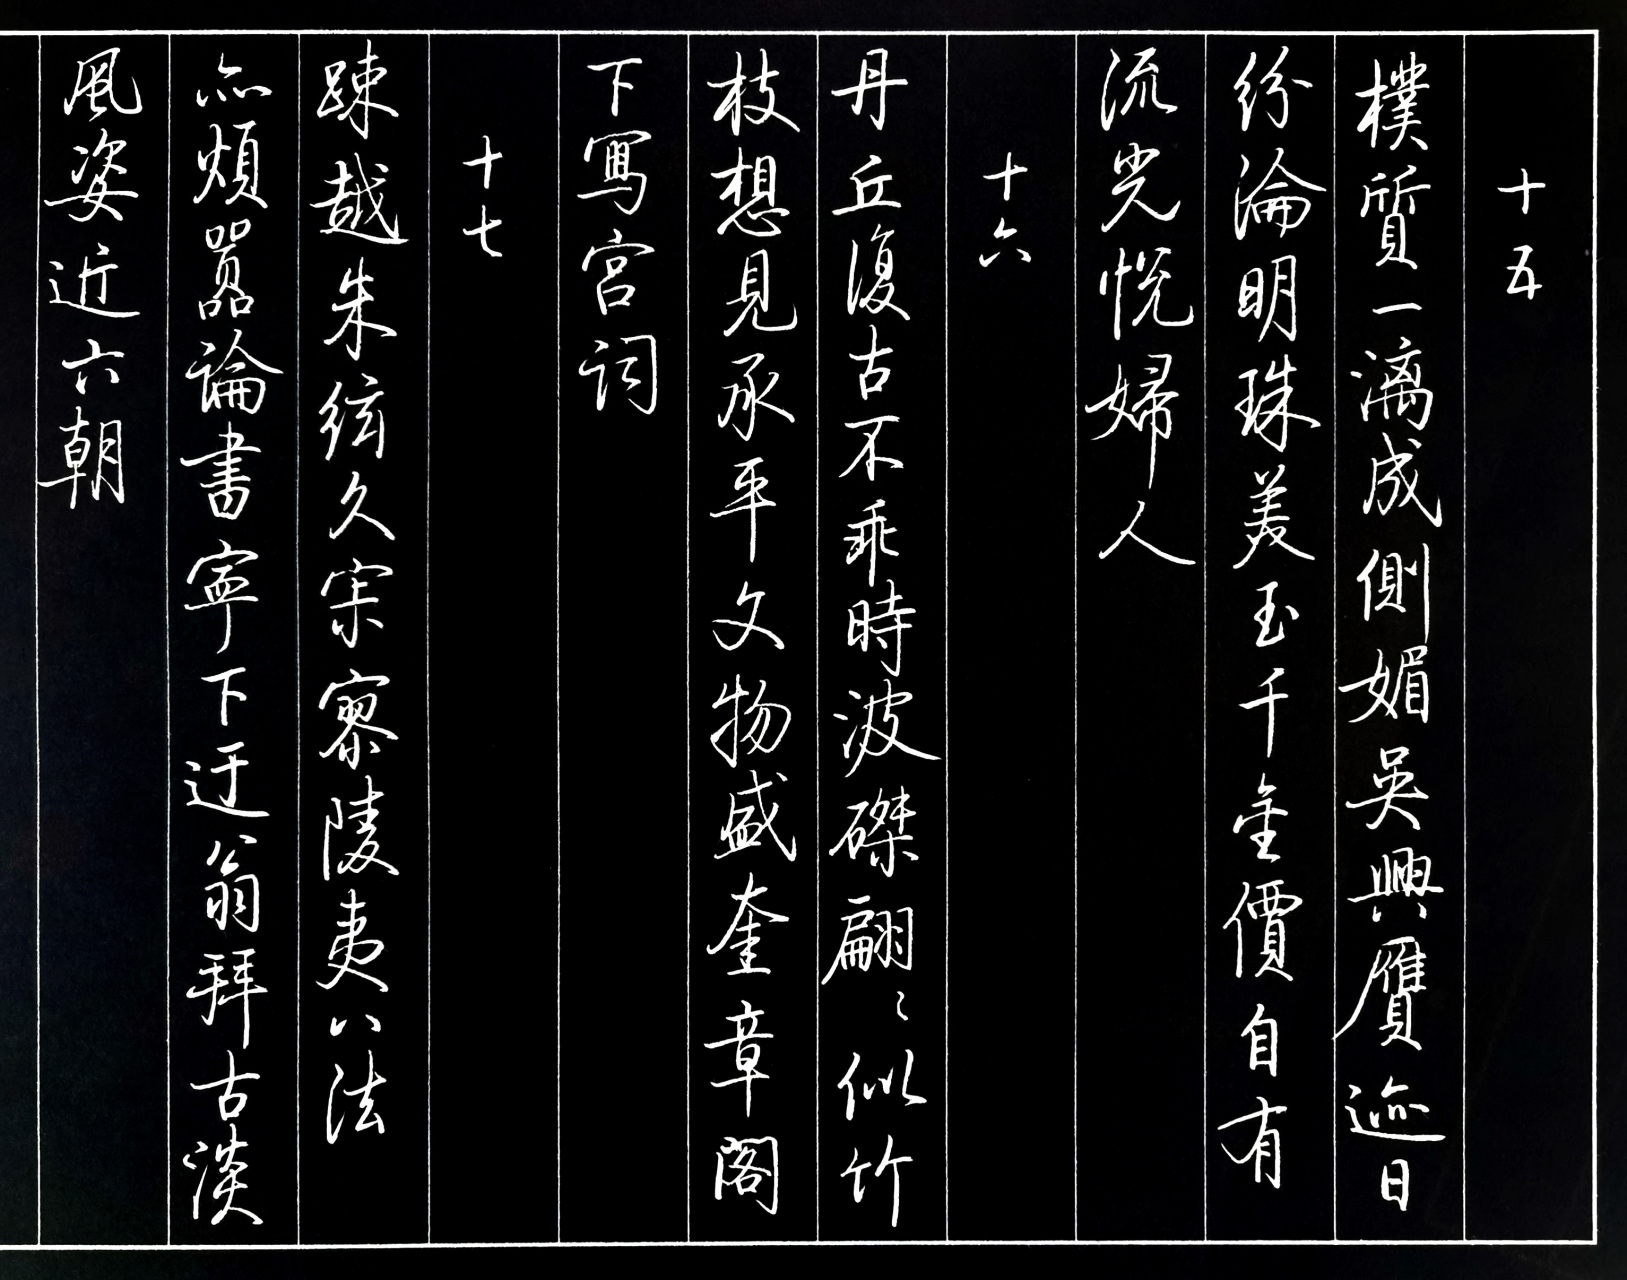 十五
樸質一漓成側媚吳興贋迹日
紛淪明珠美玉千金價自有
流光悅婦人
十六
丹丘復古不乖時波磔翩〻似竹
枝想見承平文物盛奎章閣
下寫宮詞
十七
疎越朱絃久寂寥陵夷八法
亦煩囂論書寧下迂翁拜古淡
風姿近六朝